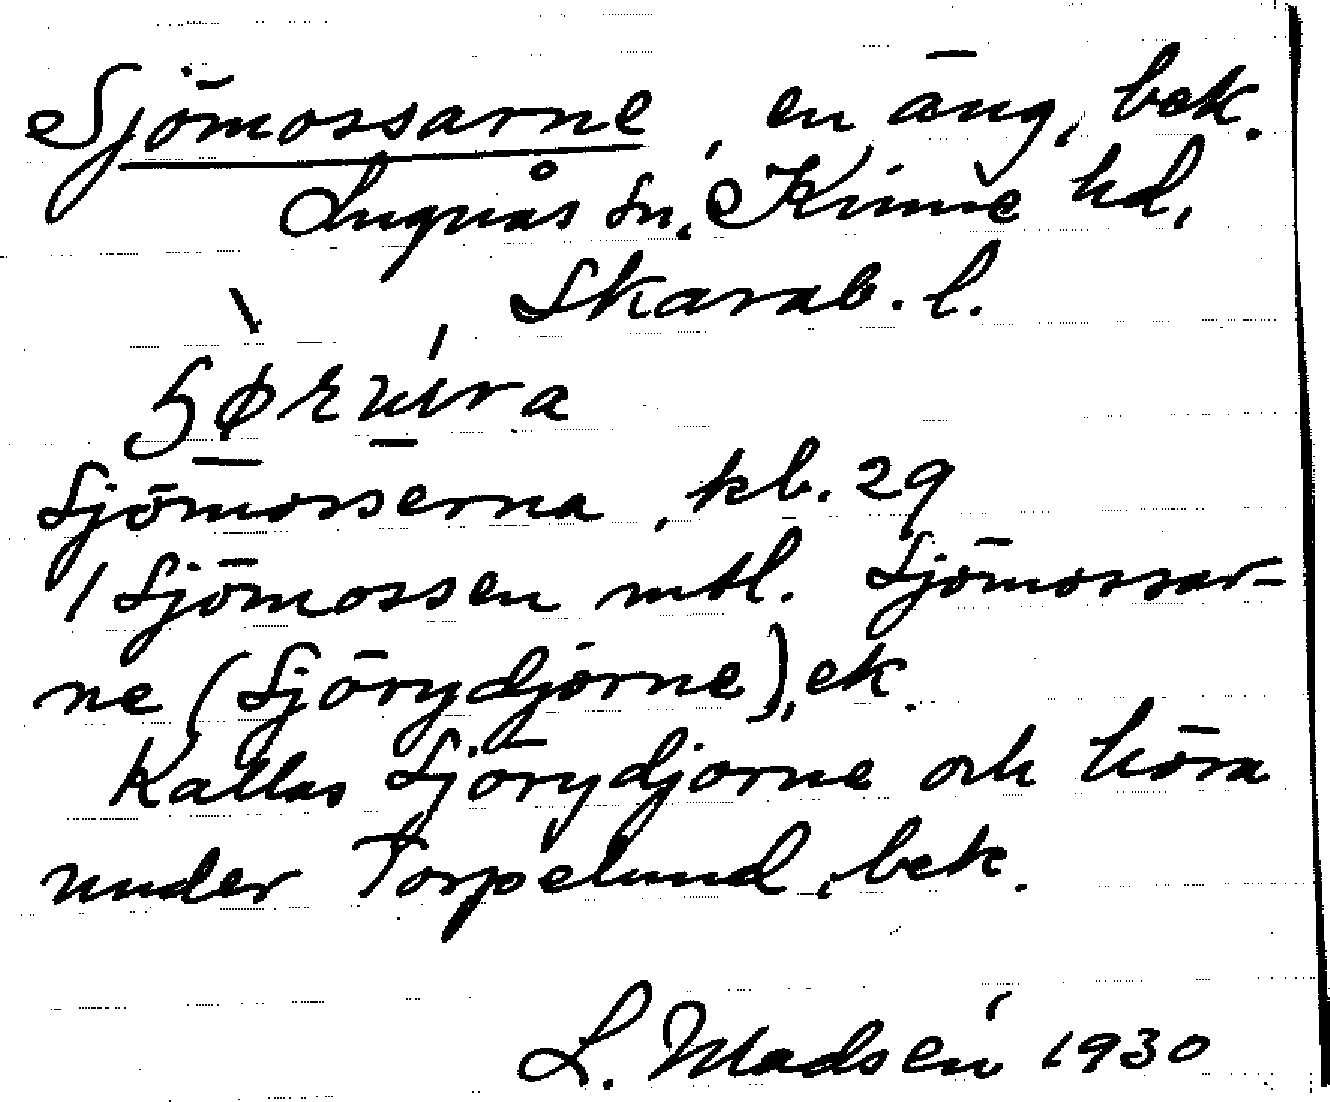 Sjömossarne, en äng, bek.
Lugnås sn, Kinne hd,
Skarab. l.
Sjömosserna, kb. 29
/ Sjömossen mtl. Sjömossar-
ne (Sjörydjörne), ek.
Kallas Sjörydjorne och höra
under Torpelund, bek.
L. Madsén 1930